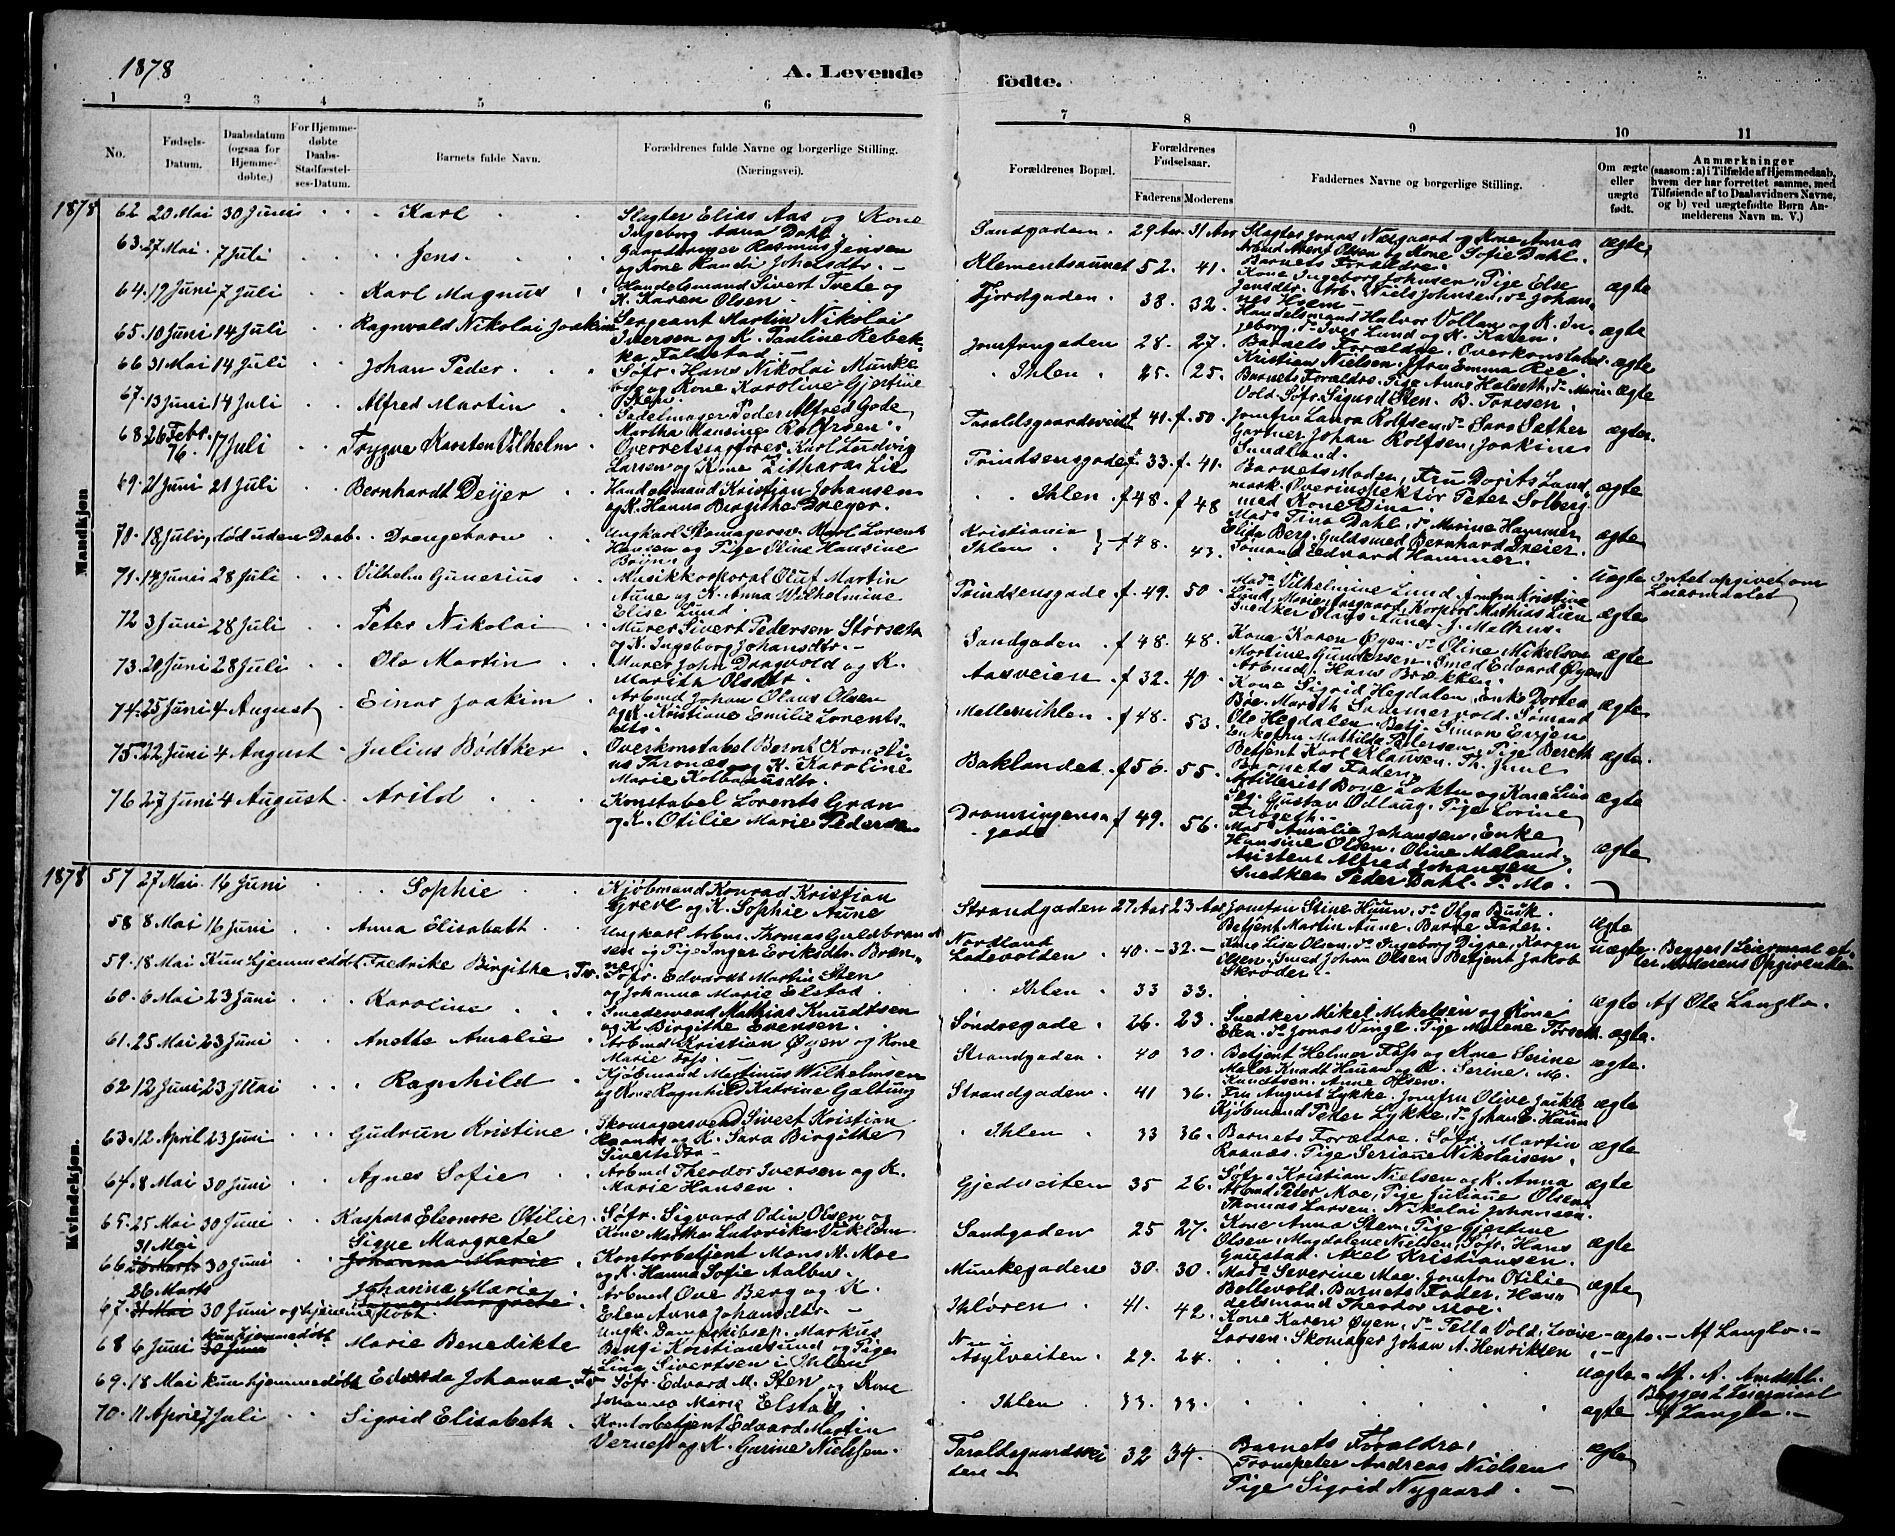 1878
A. Levende
fødte.
1 2 3 4 5 6 7 8 9 10 11
No.
Fødsels-
Datum.
Daabsdatum
(ogsaa for
Hjemme-
døbte.)
For Hjemme-
døbte
Daabs-
Stadfæstel-
ses-Datum.
Barnets fulde Navn.
Forældrenes fulde Navne og borgerlige Stilling.
(Næringsvei).
Forældrenes Bopæl.
Forældrenes
Fødselsaar.
Faderens Moderens
Faddernes Navne og borgerlige Stilling.
Om ægte
eller
uægte
født.
Anmærkninger
(saasom: a) i Tilfælde af Hjemmedaab,
hvem der har forrettet samme, med
Tilføiende af to Daabsvidners Navne,
og b) ved uægtefødte Børn An-
melderens Navn m. V.)
Mandkjøn
1878 62 20 Mai 30 Juni Karl Slagter Elias Aas og Kone
Ingeborg Anna Dahl. Sandgaden. 29 Aar 31 Aar Slagter Jonas Næsgaard og Kone Anna
Arbmd Arent Olsen og Kone Sofie Dahl. ægte
63. 27 Mai. 7 Juli Jens. Gaardbruger Rasmus Jensen
og Kone Randi Johansdtr. Klementsaunet 52. 41. Barnets Forældre.
Kone Ingeborg Johnsen, Pige Else
Jensdtr. Arb. Niels Johnsen, do Johan- ægte
64. 19 Juni 7 Juli Karl Magnus Handelsmand Sivert Tvete og
K. Karen Olsen. Fjordgaden. 38. 32. Handelsmand Halvor Vollan og K. In-
geborg, do Iver Lund og K. Karen. ægte
65. 10 Juni 14 Juli Ragnvald Nikolai Joakim Sergeant Martin Nikolai
Iversen og K. Pauline Rebek-
ka Falstad Jomfrugaden 28. 27. Barnets Forældre. Overkonstabel
Kristian Nielsen, Jfru Emma Ree. ægte
66 31 Mai 14 Juli Johan Peder Søfr. Hans Nikolai Munke
og Kone Karoline Gjertine Ihlen 25. 25. Barnets Forældre. Pige Anne Halseth, do Marie
Vold. Søfr. Sigurd Sten. B. Toresen. ægte
67. 13 Juni 14 Juli Alfred Martin Sadelmager Peder Alfred Gode
Martha Hansine Rolfsen. Taraldsgaardsveit f. 41. f. 50. Jomfru Laura Rolfsen, do Sara Sæther
Gartner Johan Rolfsen, Joakim
Sundland. ægte
68 26 Febr.
76. 17 Juli Trygve Karsten Vilhelm Overretssagfører Karl Ludvig
Larsen og Kone Zitharas Lie Prindsensgade f. 33. f. 41. Barnets Moder, Fru Dorits Land-
mark. Overinspektør Peter Solberg
med Kone Dina. ægte
69. 21 Juni 21 Juli Bernhardt Deijer Handelsmand Kristian Johansen
og K. Hanna Birgithe Dreyer. Ihlen f 48. f 48 Mad. Tina Dahl, do Marine Hammer
Elida Berg. Guldsmed Bernhard Dreier.
Sømand Edvard Hammer. ægte
70. 18 Juli, død uden Daab. Drengebarn Ungkarl Skomagersv. Karl Lorent
Hansen og Pige Oline Hansine Kristiania
Ihlen } f 48. 43. Uægte Intet opgivet om
Leiermaalet
71. 14 Juni 28 Juli Vilhelm Gunerius Musikkorporal Oluf Martin
Aune og K. Anna Wilhelmine
Elise Lund. Prindsensgade f. 49. 50. Mad. Vilhelmine Lund, Jomfru Kristine
Lund, Korporl Mathias Lien
Snedker Olaus Aune. J. Melhus. ægte
72 3 Juni 28 Juli Peter Nikolai Murer Sivert Pedersen Størseth
og K. Ingeborg Johansdtr. Sandgaden f 48. 48. Kone Karen Øyen. do Oline Mikelsen
Martine Gundersen. Smed Edvard Øyen
Arbmd. Hans Brækken. ægte
73. 20 Juni 28 Juli Ole Martin Murer John Dragvold og K.
Marith Olsdtr. Aasveien f 32. 40. Kone Sigrid Hegdalen, Enke Dortea
Bøe. Marith Sommervold. Sømand
Ole Hegdalen. ægte
74. 25 Juni 4 August Einar Joakim Arbmd Johan Olaus Olsen
og K. Kristiane Emilie Lorents-
dtr. Mellemihlen f 48. 53. Enkefru Mathilde Pedersen. Pige Bereth
Betjent Karl Klausen. Th. Juul
Barnets Fader. ægte
75. 22 Juni 4 August Julius Bødtker Overkonstabel Bernt Korneli-
us Thronæs og K. Karoline
Marie Kolbanusdtr. Baklandet f 56. 55. Artillerist Bone Loktu og Kone Lina
Serg. Gustav Ødlaug. Pige Lovine
Frøseth. ægte
76 27 Juni 4 August Arild Konstabel Lorents Gran
og K. Otilie Marie Pedersen Dronningens-
gade f 49. 56. Mad. Amalie Johansen, Enke
Hansine Olsen. Oline Maland.
Asistent Alfred Johansen
Snedker Peder Dahl. P. Mo. ægte
Kvindekjøn.
1878 57 27 Mai. 16 Juni Sophie Kjøbmand Konrad Kristian
Greve og K. Sophie Aune Strandgaden 27 Aar 23 Aar Jomfru Stine Huun. do Olga Busk.
Betjent Martin Aune. Barne Fader. Ægte
58 8 Mai 16 Juni Anna Elisabeth Ungkarl Arbm. Thomas Guldbran
sen og Pige Inger Eriksdtr. Nordland
Ladevolden 40. 32. Kone Lise Olsen. do Ingeborg Digre, Karen
Olsen. Smed Johan Olsen. Betjent Jakob
Skrøder. Uægte. Begges 1 Leiermaal ef-
ter Moderens Opgivende
59. 18 Mai Kun hjemmedøbt Fredrike Birgithe, Tv. Søfr. Edvardt Martin Sten
og Johanna Marie Elstad. Ihlen 33 33. ægte Af Ole Langlo.
60. 6 Mai 23 Juni Karoline Smedesvend Mathias Knudtsen
og K. Birgithe Evensen. Søndregade 26. 23. Snedker Mikel Mikelsen og Kone
Elen. do Jonas Vingl. Pige Malene Forseth. ægte.
61. 25 Mai 23 Juni Anette Amalie Arbmd Kristian Øyen og Kone
Marie Foss. Strandgaden. 40 30. Betjent Helmer Foss og Kone Serine
Maler Knudt Hauan og K. Serine. M.
Knudtsen. Anne Olsen. ægte.
62 12 Juni 23 Juni Ragnhild Kjøbmand Martinus Wilhelmsen
og Kone Ragnhild Katrine Galtung Strandgaden. 41 36. Fru August Lykke, Jomfru Olive Jaikle
Kjøbmand Peter Lykke. do Johan E. Huun ægte
63. 12 April 23 Juni Gudrun Kristine. Skomagersvend Sivert Kristian
Raanes og K. Sara Birgithe
Sivertsdtr. Ihlen 33 36. Barnets Forældre. Søfr. Martin
Raanæs. Pige Seriane Nikolaisen. ægte
64. 8 Mai 30 Juni Agnes Sofie Arbmd Theodor Iversen og K.
Marie Hansen. Gjedveiten 35 26. Søfr. Kristian Nielsen og K. Anna
Arbmd Peter Moe, Pige Juliane Olsen
Thomas Larsen. Nikolai Johansen. ægte
65. 25 Mai 30 Juni Kaspara Eleonore Otilie. Søfr. Sigvard Odin Olsen og
Kone Martha Ludovika Viklem Sandgaden 25 27. Kone Anna Stem, Pige Gjertine
Olsen, Magdalene Nielsen, Søfr. Hans
Grustad. Axel Kristiansen. ægte
66 31 Mai
26 Marts 30 Juni Signe Margrete
Johanna Marie Kontorbetjent Mons M. Moe
og K. Hanna Sofie Aalbu. Munkegaden. 30. 30. Mad. Severine Moe. Jomfru Otilie
Bellevold. Barnets Fader. Han-
delsmand Theodor Moe. ægte
67. 26 Marts
31 Mai 30 Juni og hjemmedøbt Johanna Marie.
Signe Margrete. Arbmd Ove Berg og K.
Elen Anna Johansdtr. Ihløren. 41. 42. Kone Karen Øyen, do Tella Vold, Lovise
Larsen. Skomager Johan A. Henriksen ægte. Af Langlo.
68 6 Juni kun hjemmedøbt
30 Juni Marie Benedikte Ungk. Dampskibsexp. Markus
Bing i Kristiansund og Pige
Lina Sivertsen i Ihlen Asylveiten. 29. 24. uægte Af. A. Amdahl.
Begges 2 Leiermaal
69. 18 Mai kun hjemmedøbt Edvarda Johanna, Tv Søfr. Edvard M. Sten og Kone
Johanna Marie Elstad Ihlen 33. 33. ægte Af Langlo.
70. 11 April 7 Juli Sigrid Elisabeth. Kontorbetjent Edvard Martin
Vernes og K. Gurine Nielsen. Taraldsgaardsvei
ten 32 34. Barnets Forældre,
Trompeter Andreas Nielsen
Pige Sigrid Nygaard. ægte